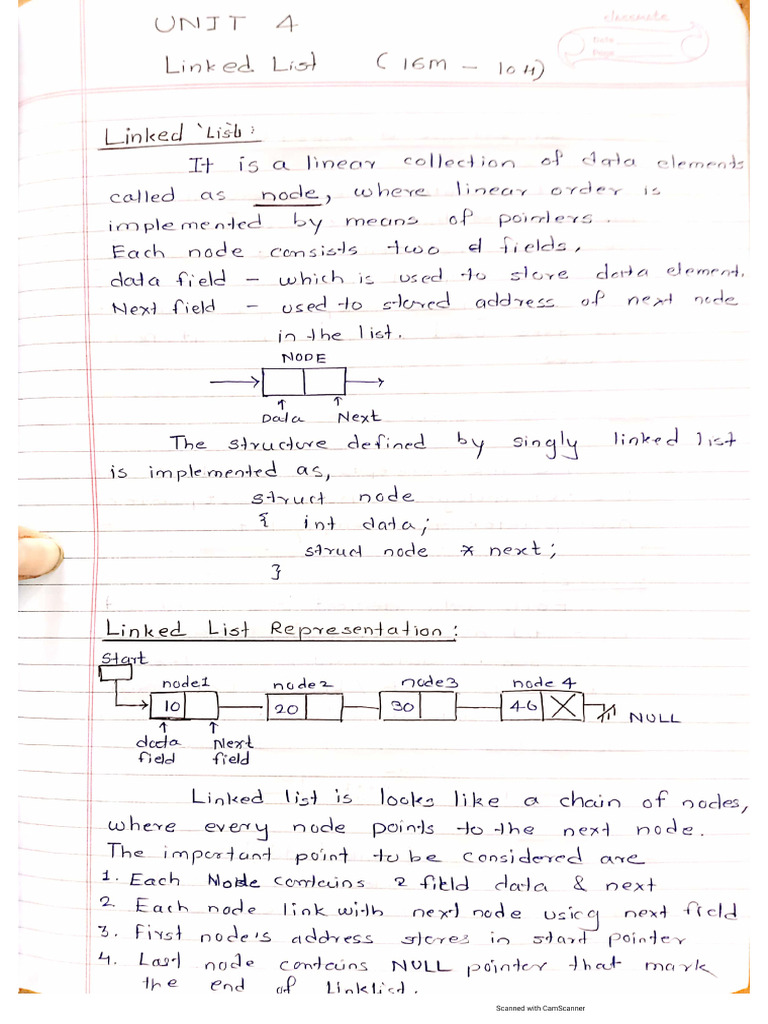 UNIT 4
classmate
Date
Page
Linked List (16M - 10H)
Linked List:
It is a linear collection of data elements
called as node, where linear order is
implemented by means of pointers.
Each node consists two d fields,
data field - which is used to store data element.
Next field - used to stored address of next node
in the list.
NODE
Data Next
The structure defined by singly linked list
is implemented as,
struct node
{ int data;
struct node * next;
}
Linked List Representation:
Start
node1 node2 node3 node 4
10 20 30 40 NULL
data Next
field field
Linked list is looks like a chain of nodes,
where every node points to the next node.
The important point to be considered are
1. Each Node contains 2 field data & next
2. Each node link with next node using next field
3. First node's address stores in start pointer
4. Last node contains NULL pointer that mark
the end of linklist.
Scanned with CamScanner